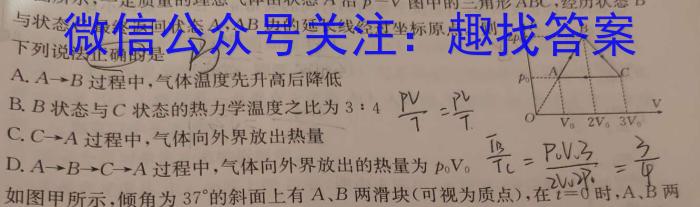 一定质量的理想气体由状态A沿p-V图中的三角形ABC,经历状态B
与状态
微信公众号关注:趣找答案
下列说法正确的是
A. A→B过程中,气体温度先升高后降低
B. B状态与C状态的热力学温度之比为3:4
C. C→A过程中,气体向外界放出热量
D. A→B→C→A过程中,气体向外界放出的热量为p₀V₀
如图甲所示,倾角为37°的斜面上有A、B两滑块(可视为质点),在t=0时,A、B两
PV/T = PV/T
T_B/T_C = = 3/4
p₀
A
C
O
V₀ 2V₀ 3V₀ V